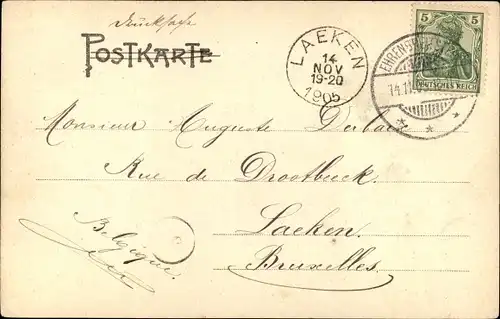 Drucksache
POSTKARTE
LAEKEN
14
NOV
19-20
1905
5 5
DEUTSCHES REICH
14.11
Monsieur Auguste
Rue de Drootbeek.
Laeken.
Bruxelles.
Belgique.